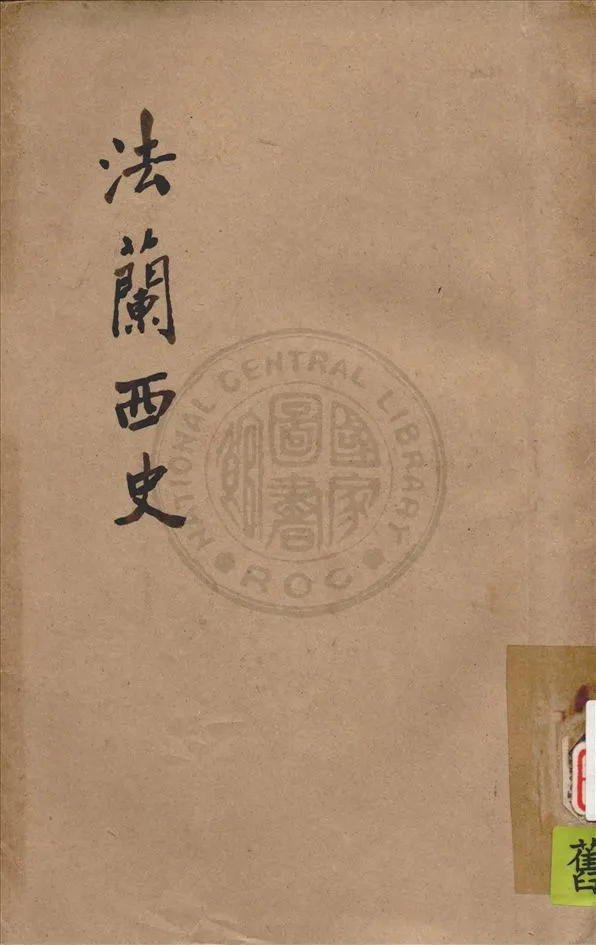 法蘭西史
NATIONAL CENTRAL LIBRARY
國家圖書館
ROC
舊